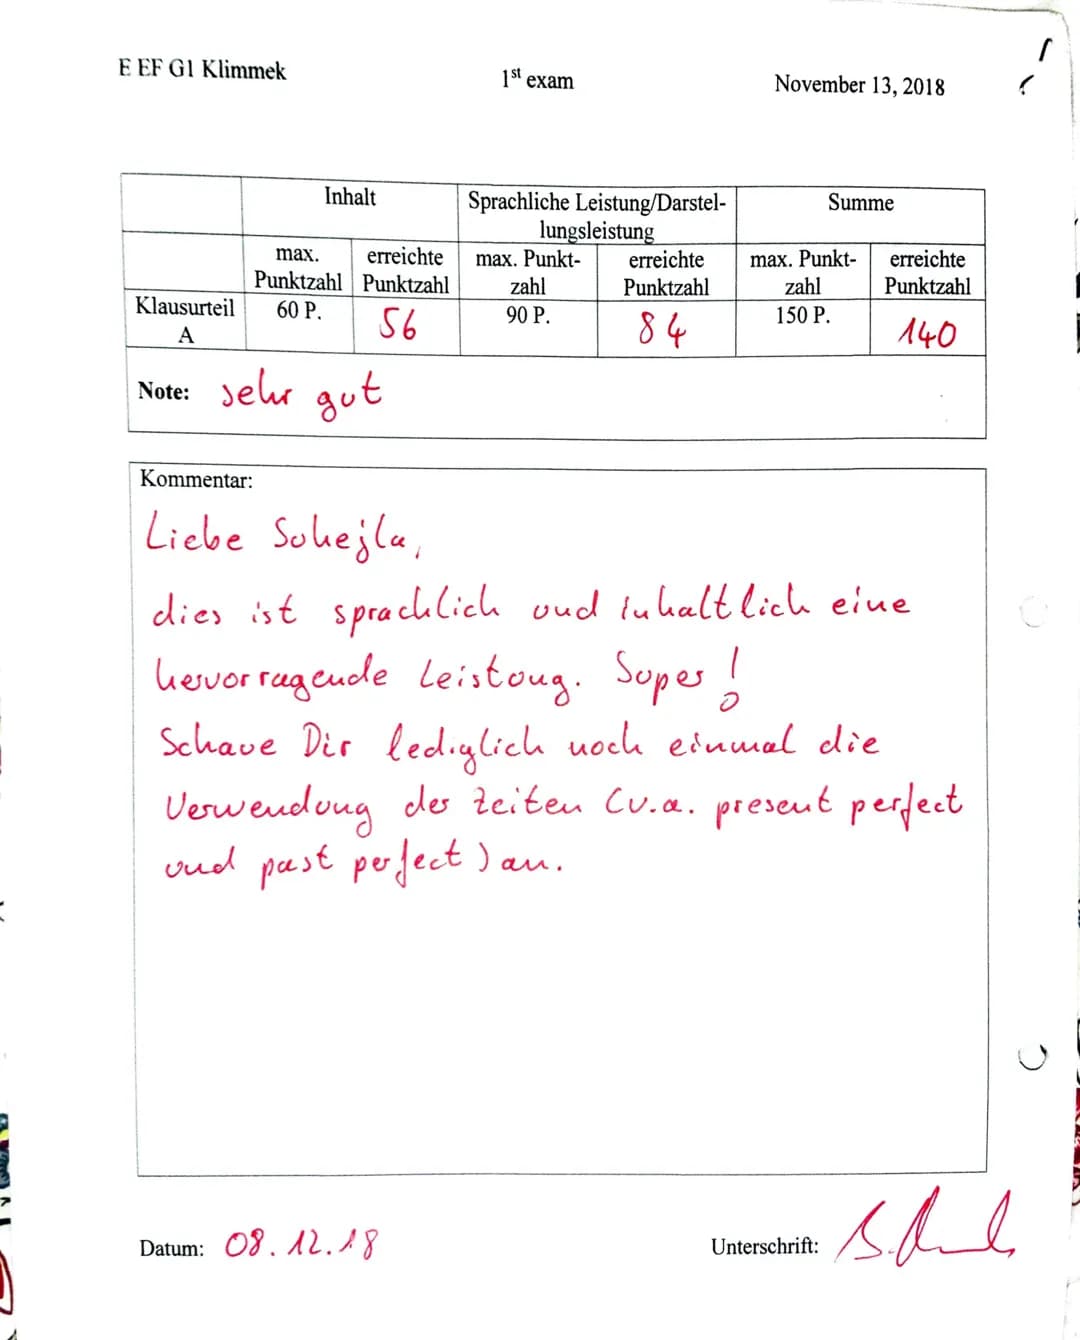 E EF G1 Klimmek
1st exam
November 13, 2018
Inhalt
Sprachliche Leistung/Darstel-
lungsleistung
Summe
max.
Punktzahl
erreichte
Punktzahl
max. Punkt-
zahl
erreichte
Punktzahl
max. Punkt-
zahl
erreichte
Punktzahl
Klausurteil
A
60 P.
56
90 P.
84
150 P.
140
Note: sehr gut
Kommentar:
Liebe Sohejla,
dies ist sprachlich und inhaltlich eine
hervorragende Leistung. Super!
Schaue Dir lediglich noch einmal die
Verwendung der Zeiten (v.a. present perfect
und past perfect) an.
Datum: 08.12.18
Unterschrift: